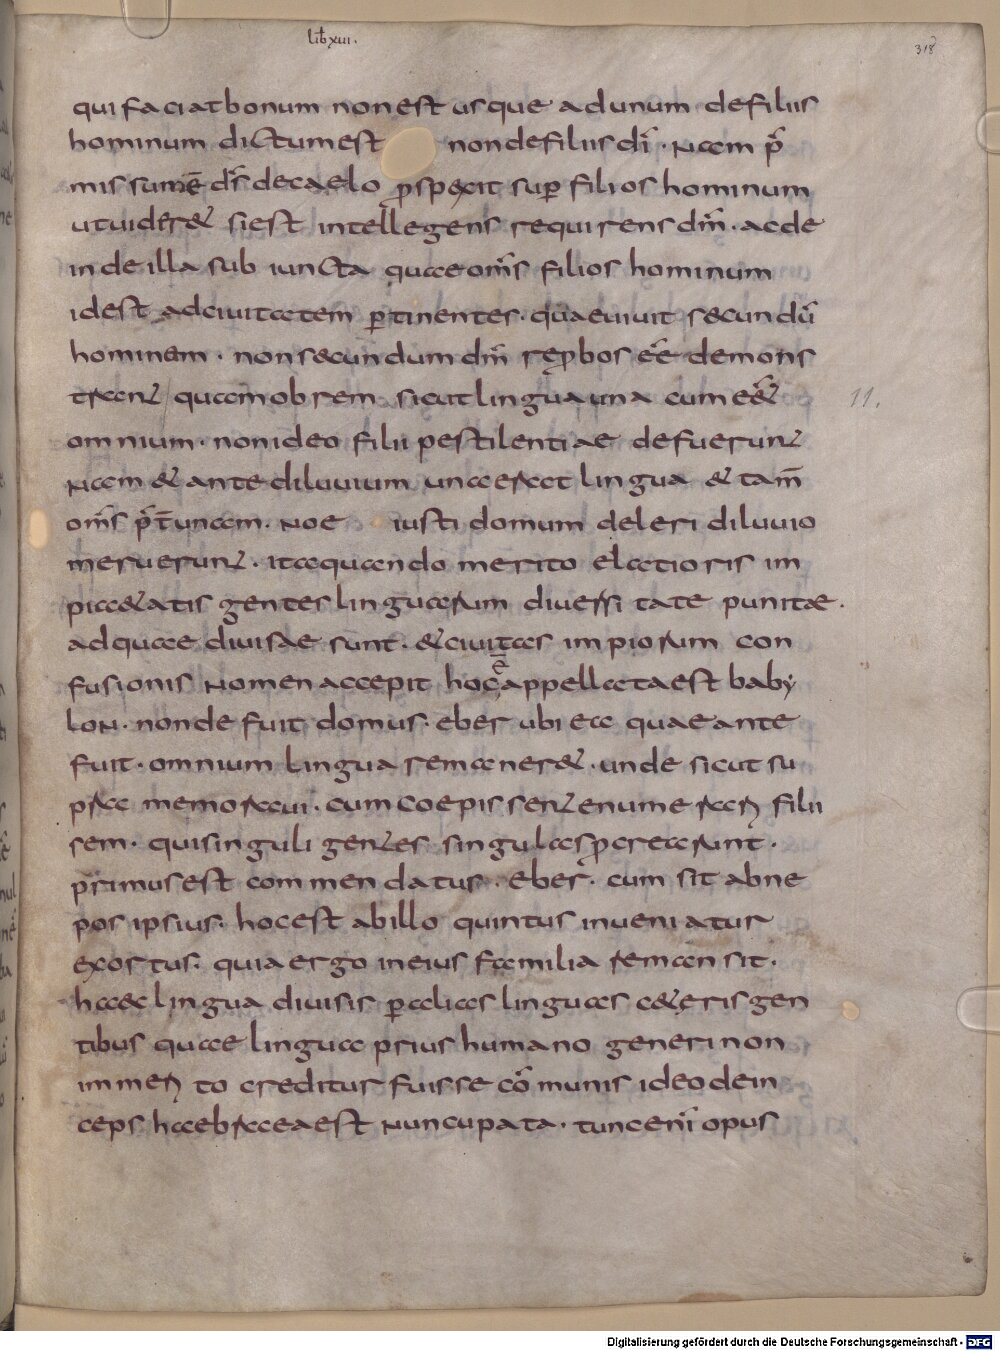 lib xui.
318
qui faciat bonum non est usque ad unum de filiis
hominum dictum est non de filiis dī. Nam p̄
missum ē ds̄ de caelo ꝓspexit suꝑ filios hominum
ut uideret si est intellegens requirens dm̄. ac de
inde illa sub iuncta quae om̄s filios hominum
id est ad ciuitatem ꝑtinentes. quae uiuit secundū
hominem. non secundum dm̄ reꝓbos eē demons
trant quam ob rem sicut lingua una cum eēt
omnium. non ideo filii pestilentiae defuerunt
Nam et ante diluuium una erat lingua et tam̄
om̄s p̄t unam. Noe iusti domum deleri diluuio
meruerunt. ita quando merito elatioris im
pietatis gentes linguarum diuersi tate punitae.
ad quae diuisae sunt. et ciuitas impiorum con
fusionis Nomen accepit hoc ē appellata est baby
lon. non defuit domus. eber ubi ea quae ante
fuit. omnium lingua remaneret. unde sicut su
pra memoraui. cum coepissent enumerari filii
sem. qui singuli gentes singulas ꝓcrearunt.
primus est commendatus. eber. cum sit abne
pos ipsius. hoc est ab illo quintus inueniatur
exortus. quia ergo in eius familia remansit.
haec lingua diuisis ꝑ alias linguas ceteris gen
tibus quae lingua prius humano generi non
immeri to creditur fuisse cōmunis ideo dein
ceps haebraea est Nuncupata. tunc enī opus
11.
Digitalisierung gefördert durch die Deutsche Forschungsgemeinschaft - DFG